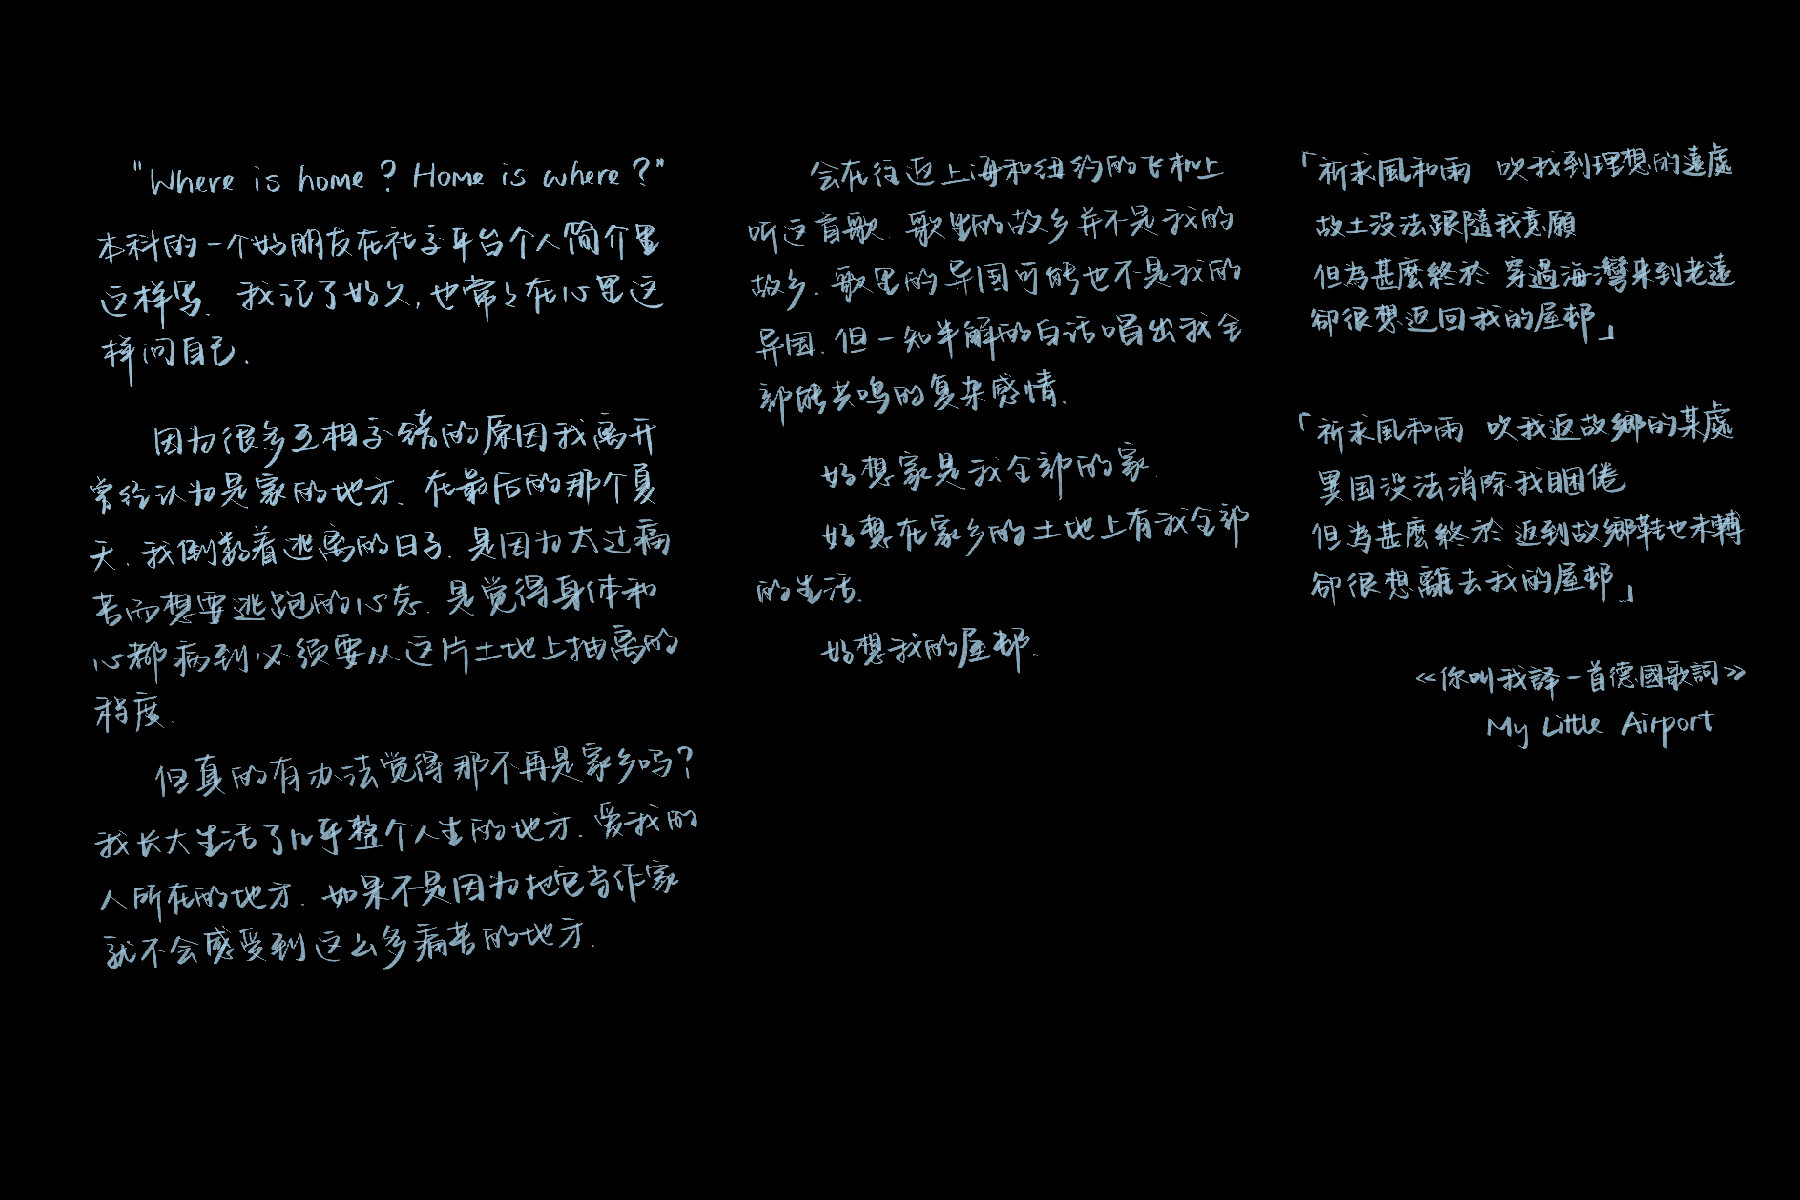 "Where is home? Home is where?"
本科的一个好朋友在社交平台个人简介里
这样写. 我记了好久, 也常々在心里这
样问自己.
因为很多互相交错的原因我离开
曾经认为是家的地方. 在最后的那个夏
天, 我倒数着逃离的日子. 是因为太过痛
苦而想要逃跑的心态. 是觉得身体和
心都病到必须要从这片土地上抽离的
程度.
但真的有办法觉得那不再是家乡吗?
我长大生活了几乎整个人生的地方. 爱我的
人所在的地方. 如果不是因为把它当作家
就不会感受到这么多痛苦的地方.
会在往返上海和纽约的飞机上
听这首歌. 歌里的故乡并不是我的
故乡. 歌里的异国可能也不是我的
异国. 但一知半解的白话唱出我全
部能共鸣的复杂感情.
好想家是我全部的家.
好想在家乡的土地上有我全部
的生活.
好想我的屋邨.
「祈求風和雨 吹我到理想的遠處
故土没法跟隨我意願
但為甚麼終於 穿過海灣来到老遠
卻很想返回我的屋邨」
「祈求風和雨 吹我返故鄉的某處
異国没法消除我睏倦
但為甚麼終於 返到故鄉鞋也未轉
卻很想離去我的屋邨」
《你叫我譯一首德國歌詞》
My Little Airport